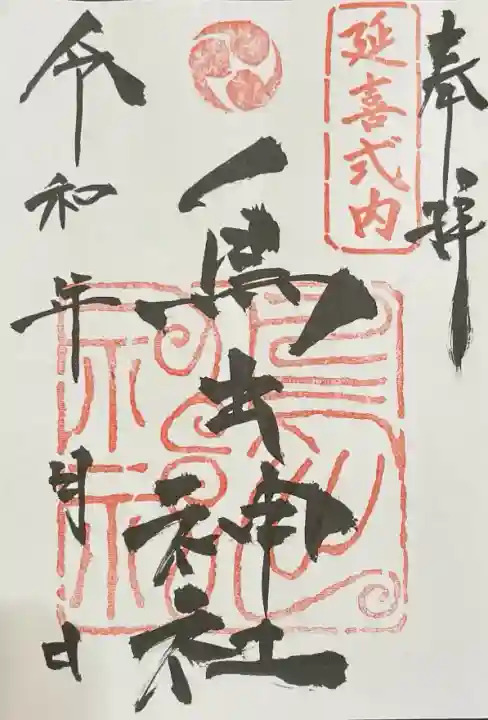 奉拝
延喜式内
鳥出神社
令和 年 月 日